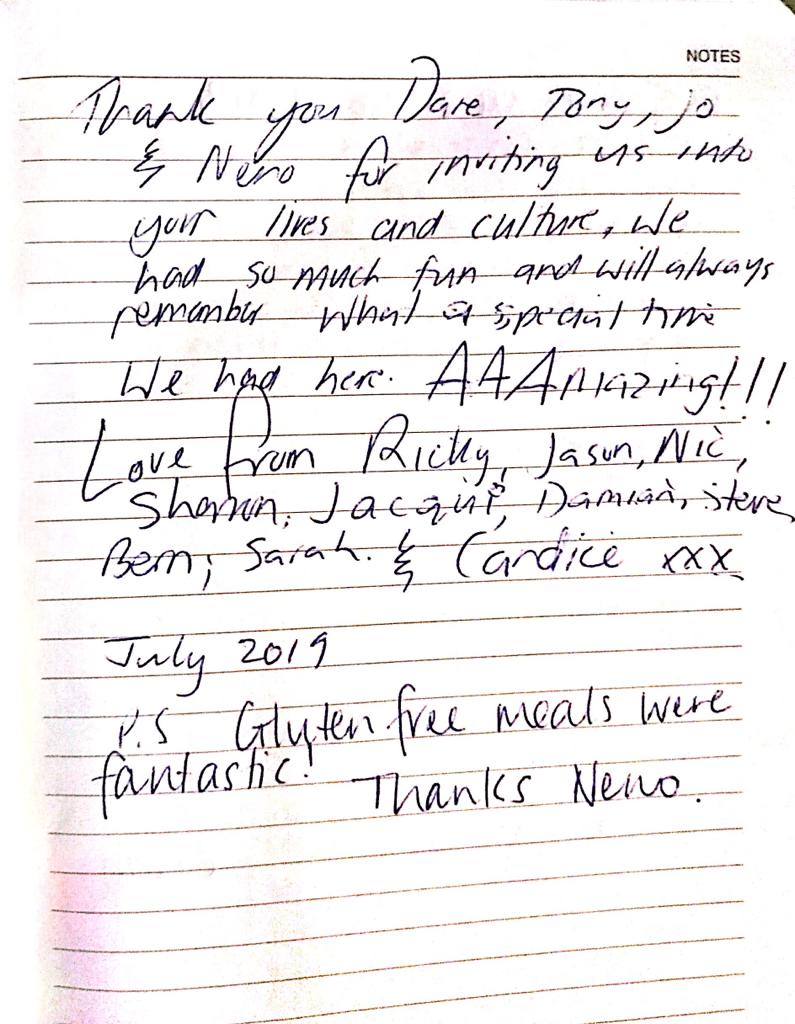 NOTES
Thank you Dave, Tony, Jo
& Neno for inviting us into
your lives and culture, We
had so much fun and will always
remember what a special time
We had here. AAAmazing!!!
Love from Ricky, Jason, Nic,
Sharron, Jacqui, Damian, Steve,
Bern, Sarah. & Candice xxx
July 2019
P.S Glyten free meals were
fantastic!
Thanks Neno.